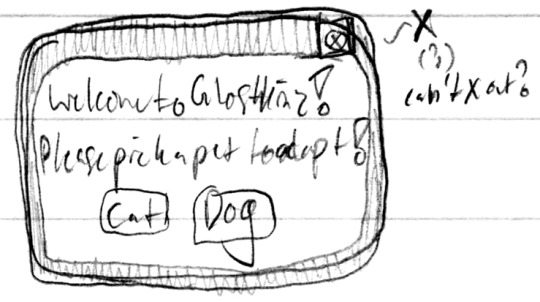 X
Welcome to Glostkinz!
(?)
can't X out?
Please pick a pet to adopt!
Cat Dog